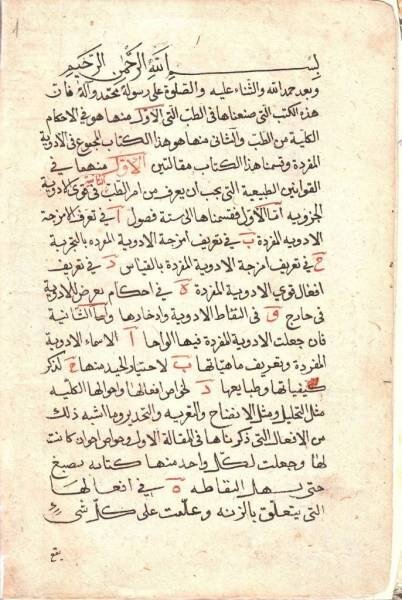 بسم الله الرحمن الرحيم
وبعد حمد الله والثناء عليه والصلوة على رسوله محمد وآله فان
هذه الكتب التى صنعناها فى الطب التى الاول منها هو فى الاحكام
الكلية من الطب والثانى منها هو هذا الكتاب المجموع فى الادوية
المفردة وقسمنا هذا الكتاب مقالتين الاول منهما فى
القوانين الطبيعية التى يجب ان يعرف من امر الطب فى قوى الادوية
الجزويه أما الاول فقسمناها الى ستة فصول آ فى تعرف امزجة
الادويه المفردة ب فى تعريف امزجة الادوية المفرده بالتجربة
ج فى تعريف امزجة الادوية المفردة بالقياس د فى تعريف
افعال قوي الادوية المفردة ه فى احكام تعرض للادوية
فى خارج و فى التقاط الادوية وادخارها وأما الثانية
فان جعلت الادوية المفردة فيها الواحا آ الاسماء الادوية
المفردة وتعريف ماهياتها ب لاختيار الجيد منها ج لذكر
كيفياتها وطبايعها د لخواص افعالها واحوالها الكليه
مثل التحليل ومثل الانضاج والتغريه والتخدير وما اشبه ذلك
من الافعال التى ذكرناها فى المقالة الاولى وخواص اخر ان كانت
لها وجعلت لكل واحد منها كتابه بصبغ
حتى يسهل التقاطه ه فى افعالها
التى يتعلق بالزنه وعلمت على كل شى
يقع